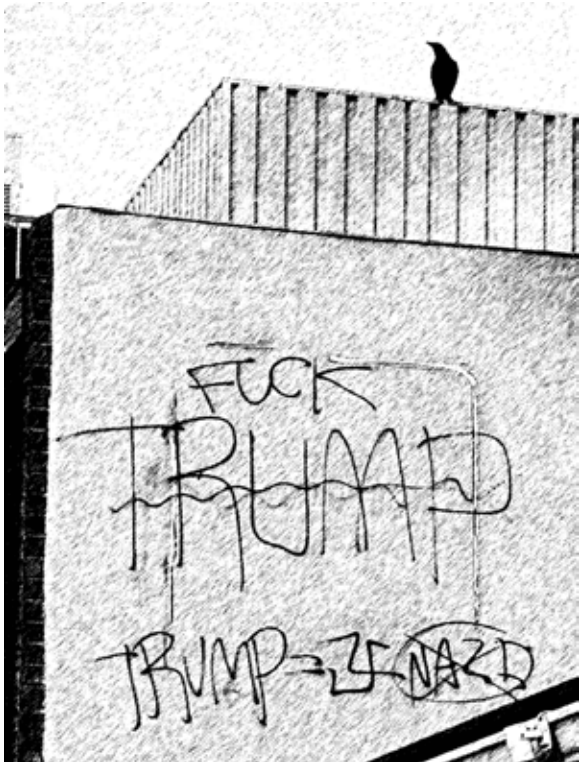 FUCK
TRUMP
TRUMP = NAZI